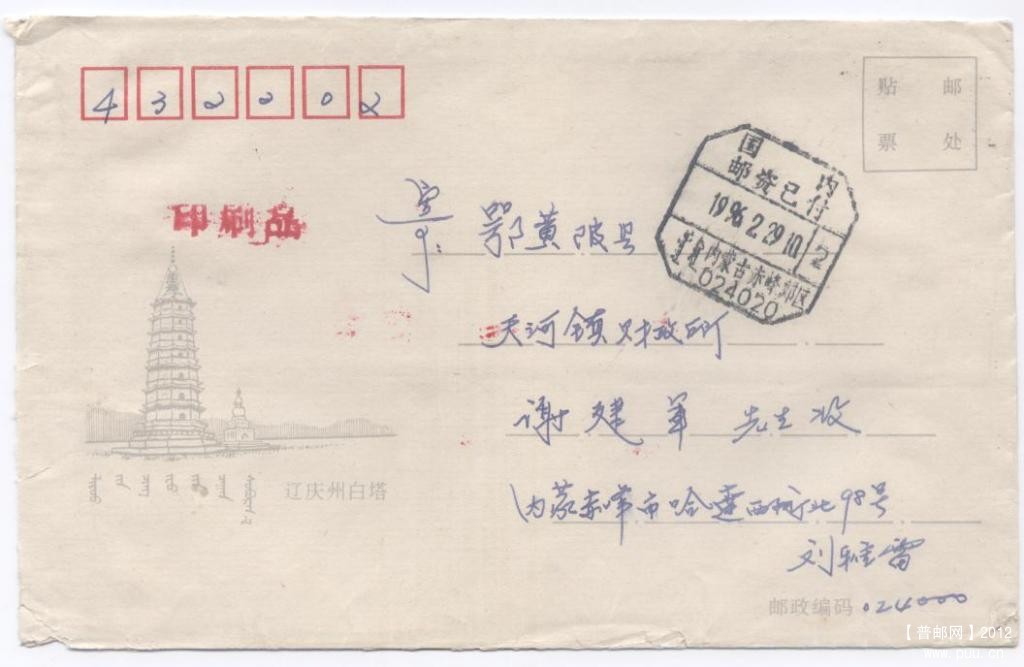 432202
贴 邮
票 处
国 内
邮资已付
1996.2.29.10
2
内蒙古赤峰郊区
024020
印刷品
寄:鄂黄陂县
天河镇财政所
谢建军 先生收
辽庆州白塔
内蒙赤峰市哈达西街北98号
刘雅雷
邮政编码 024000
【普邮网】2012